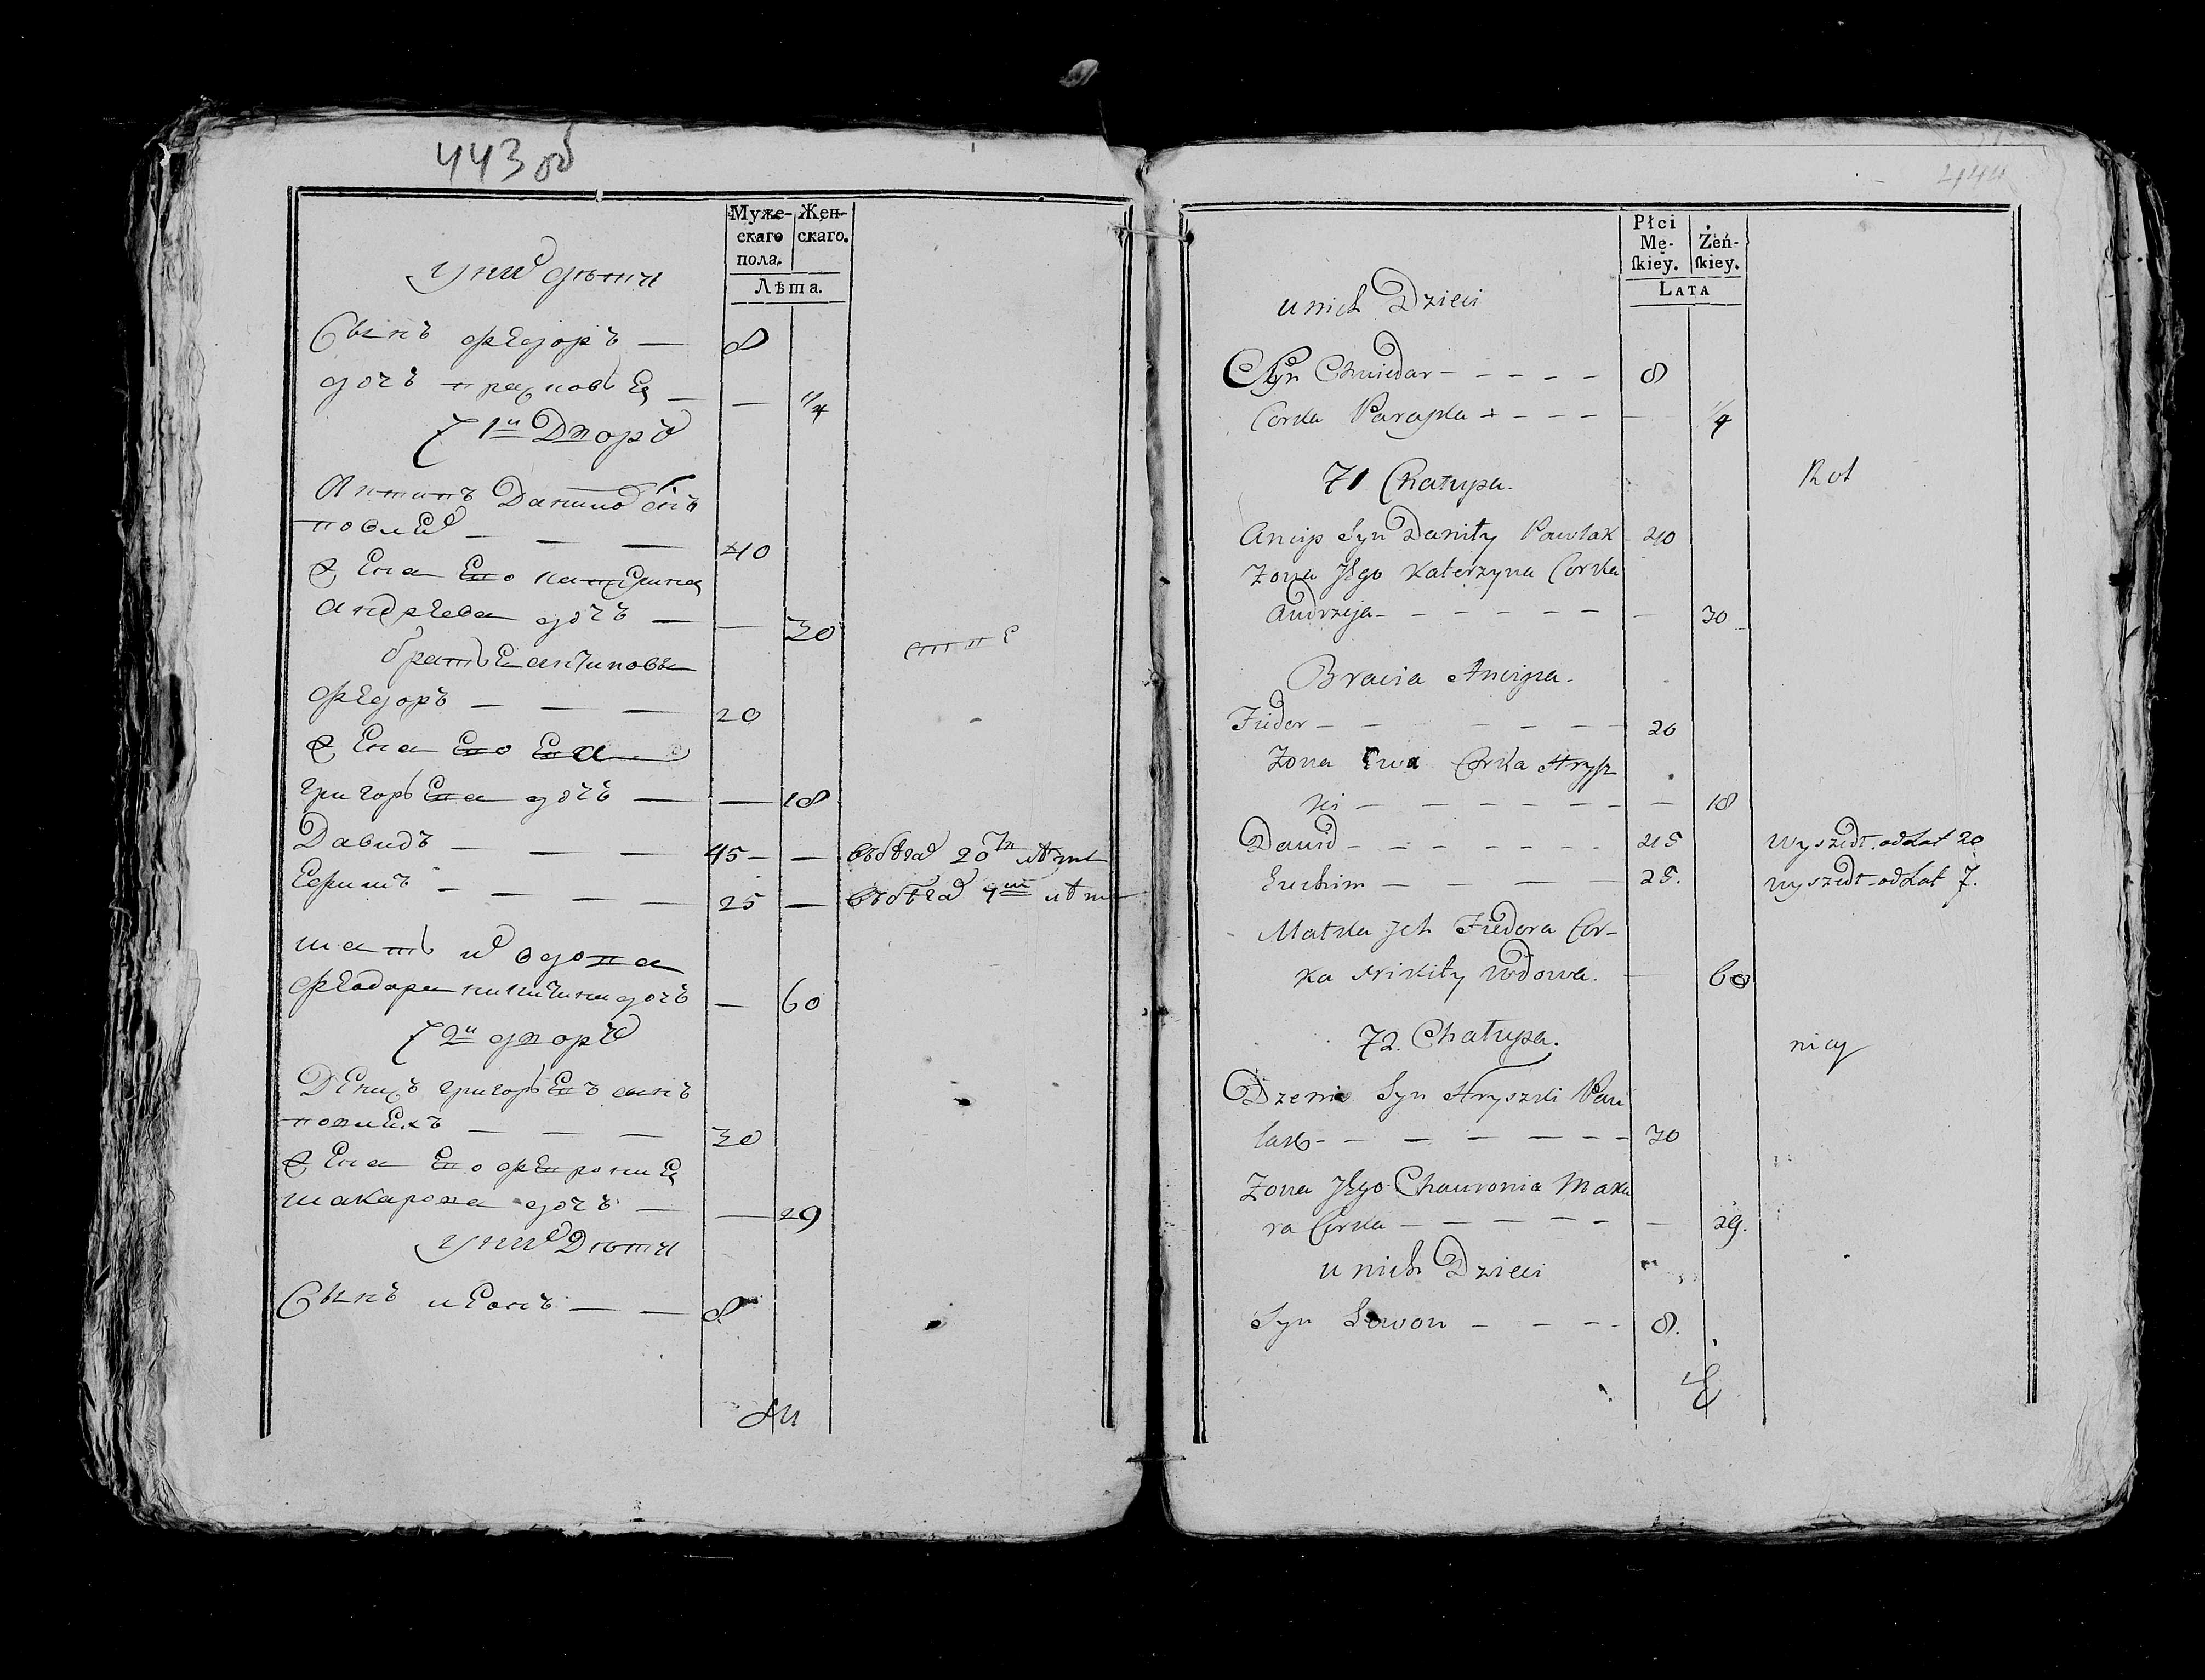 443 об
Муже-
скаго
пола.
Жен-
скаго.
Лѣта.
у них дѣти
Сынъ Федоръ — 8
дочъ Прасковья — — 1/4
71й Дворъ
Антипъ Данилов сынъ
Павлю — — — 40
Жена Его Катерина
Андреева дочъ — — 30
братья Антиповы
Федоръ — — — 20
Жена Его Ева
Григорьева дочъ — — 18
Давидъ — — — 45 — — въ бѣгах 20ть лѣтъ
Ефимъ — — — 25 — въ бѣгах 7мь лѣтъ
мать их вдова
Феодора Никитина дочъ — 60
72й дворъ
Денисъ Григорьевъ сынъ
Павлюкъ — — — 30
Жена Его Феврония
Макарова дочъ — — 29
у них Дѣти
Сынъ Леонъ — — 8
444
Płci
Mę-
ſkiey.
Żeń-
ſkiey.
LATA
u nich Dzieci
Syn Chwiedor - - - - - 8
Corka Paraska - - - - 1/4
71 Chałupa.
Rot
Ancip Syn Daniły Pawlak 40
Zona Jego Katerzyna Corka
Andrzeja - - - - - - - 30
Bracia Ancipa.
Fiedor - - - - - - - 20
Zona Ewa Corka Hrysz
ki - - - - - - - - 18
Dawid - - - - - - - 45 wyszedł od Lat 20
Euchim - - - - 25. wyszedł od Lat 7.
Matka Jch Fiedora Cor-
ka Nikity wdowa. - 60
72. Chałupa.
nicy
Dzenis Syn Hryszki Paw
lak - - - - - - - - 30
Zona Jego Chauronia Maka
ra Corka - - - - - - - 29.
u nich Dzieci
Syn Lewon - - - - 8.